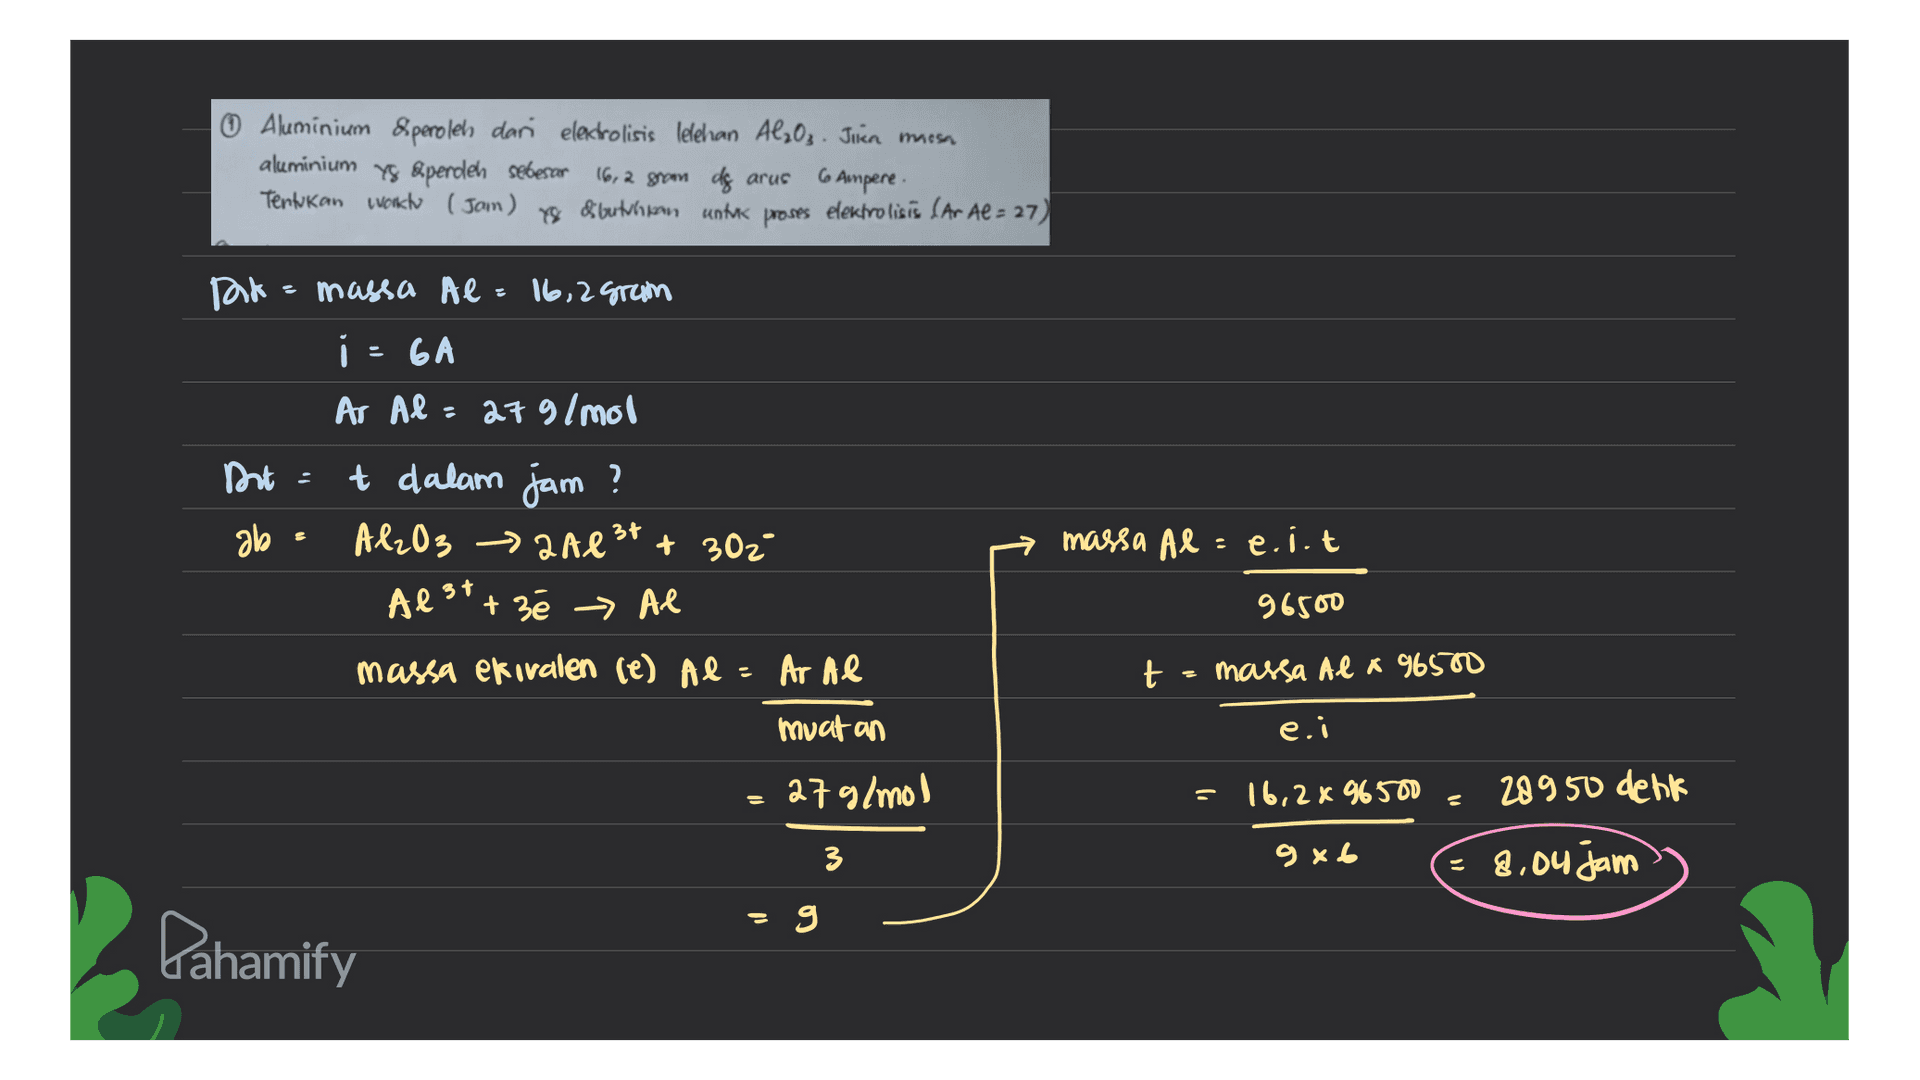 ① Aluminium diperoleh dari elektrolisis lelehan Al₂O₃. Jika massa
aluminium yg diperoleh sebesar 16,2 gram dg arus 6 Ampere.
Tentukan waktu (Jam) yg dibutuhkan untuk proses elektrolisis (Ar Al = 27)
Dik = massa Al = 16,2 gram
i = 6A
Ar Al = 27 g/mol
Dit = t dalam jam ?
Jb = Al₂O₃ → 2Al³⁺ + 3O₂⁻
Al³⁺ + 3ē → Al
massa ekivalen (e) Al = Ar Al
muatan
= 27 g/mol
3
= 9
→ massa Al = e.i.t
96500
t = massa Al x 96500
e.i
= 16,2 x 96500 = 28950 detik
9 x 6
= 8,04 jam
Pahamify